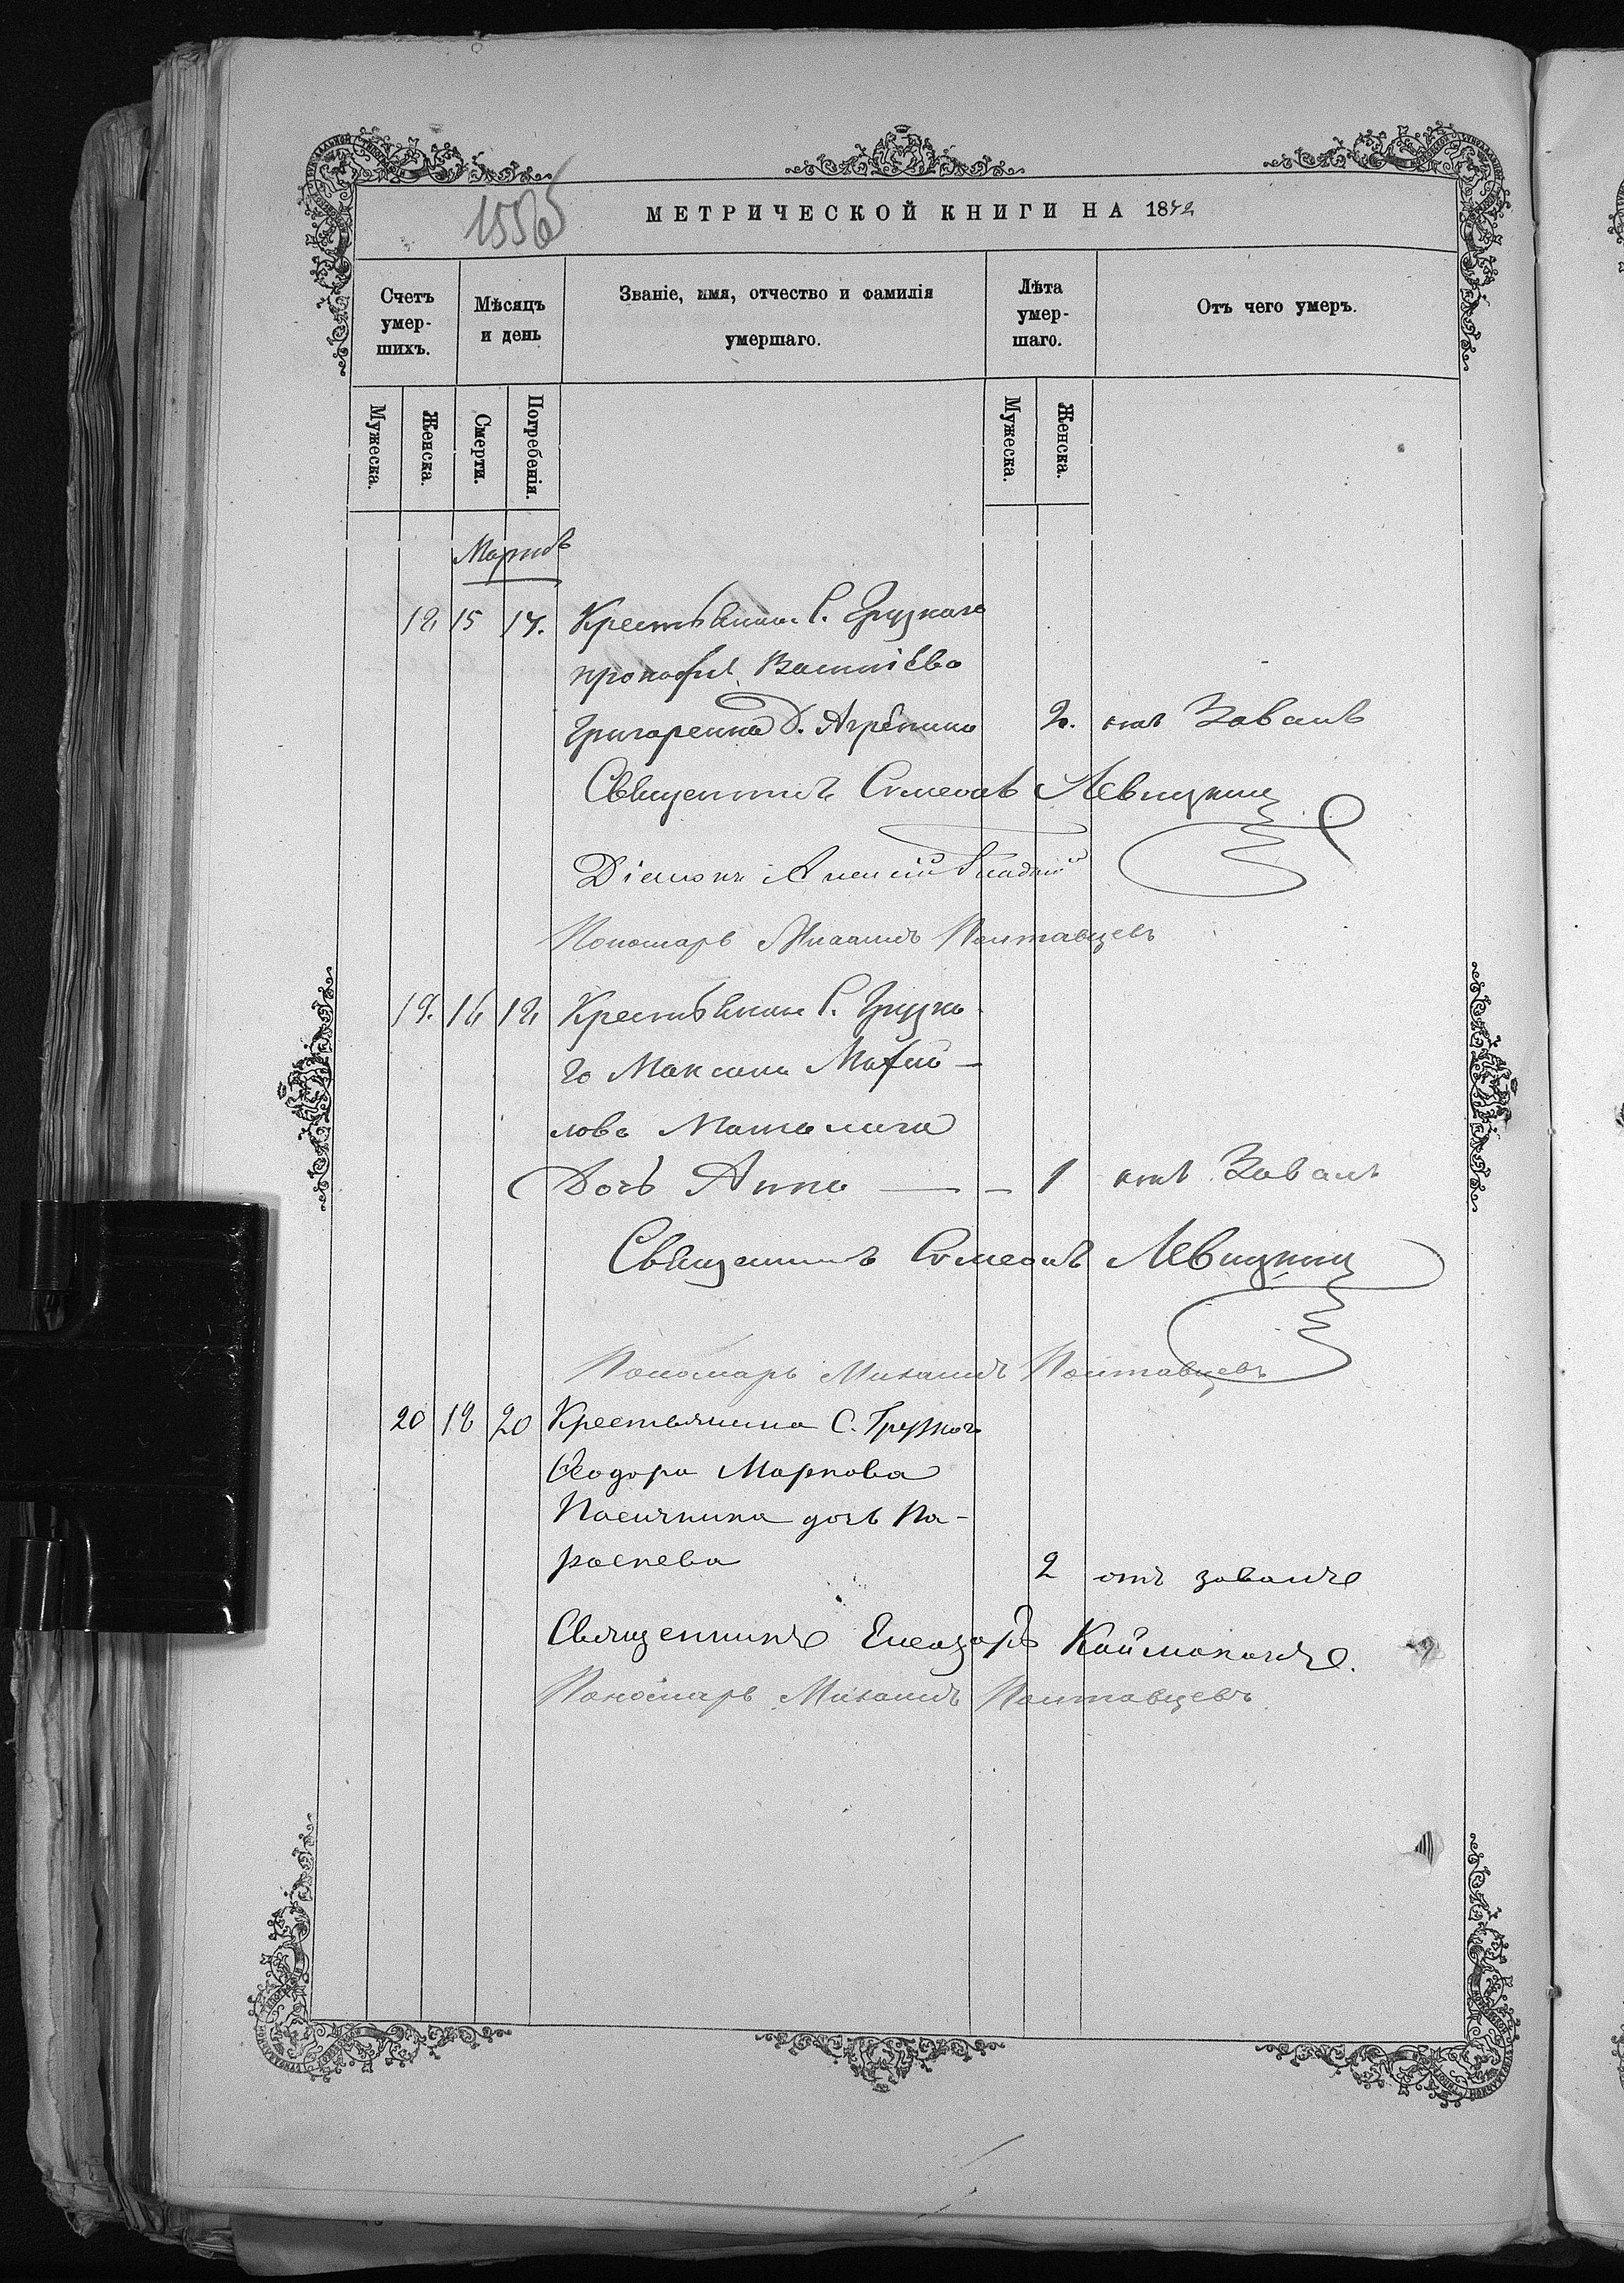 1556
МЕТРИЧЕСКОЙ КНИГИ НА 1872
Счетъ умер-шихъ.
Мѣсяцъ и день
Званіе, имя, отчество и фамилія умершаго.
Лѣта умер-шаго.
Отъ чего умеръ.
Мужеска.
Женска.
Смерти.
Погребенія.
Мужеска.
Женска.
Мартъ
18 15 17. Крестьянина С. Грузкаго
Прокофія Василіева
Григоренка д. Агрепина 2. отъ Жабы
Священникъ Симеонъ Левицкій
Діаконъ Алексій
Пономарь Михаилъ Полтавцевъ
19. 16 18 Крестьянина С. Грузка-
го Максима Михаи-
лова
Дочь Анна — — 1 отъ
Священникъ Симеонъ Левицкій
Пономарь Михаилъ Полтавцевъ
20 18 20 Крестьянина С. Грузкаго
Ѳеодора Маркова
Пасичника дочь Па-
раскева 2 отъ
Священникъ Елеазаръ
Пономарь Михаилъ Полтавцевъ